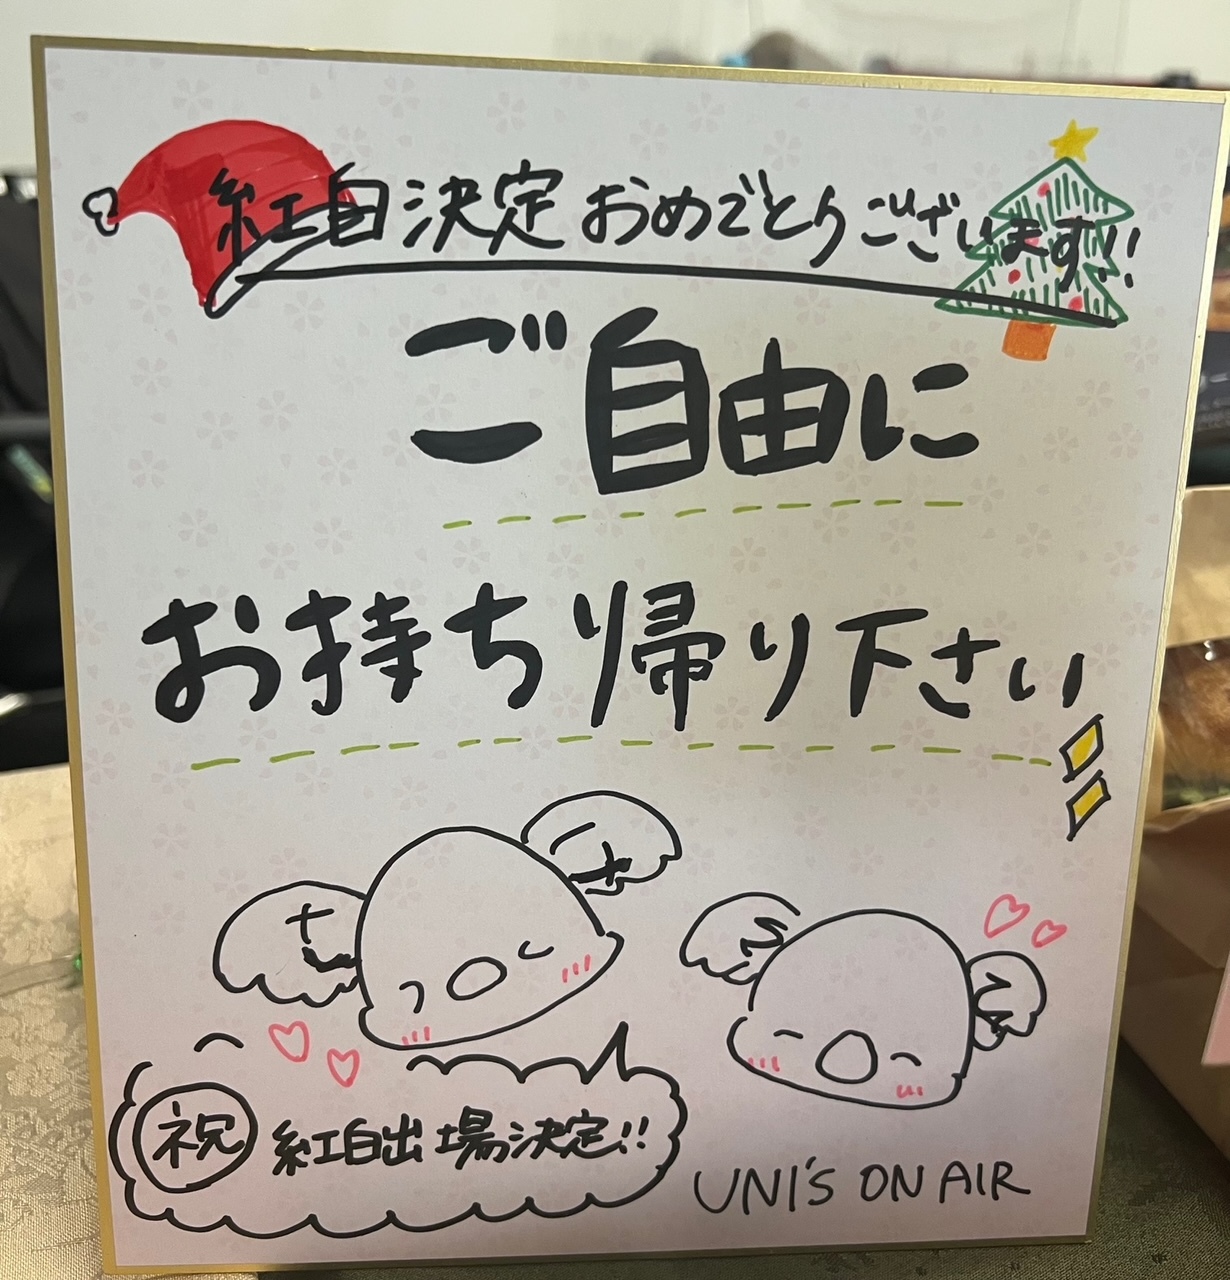 紅白決定おめでとうございます!!
ご自由に
お持ち帰り下さい
祝 紅白出場決定!!
UNI'S ON AIR